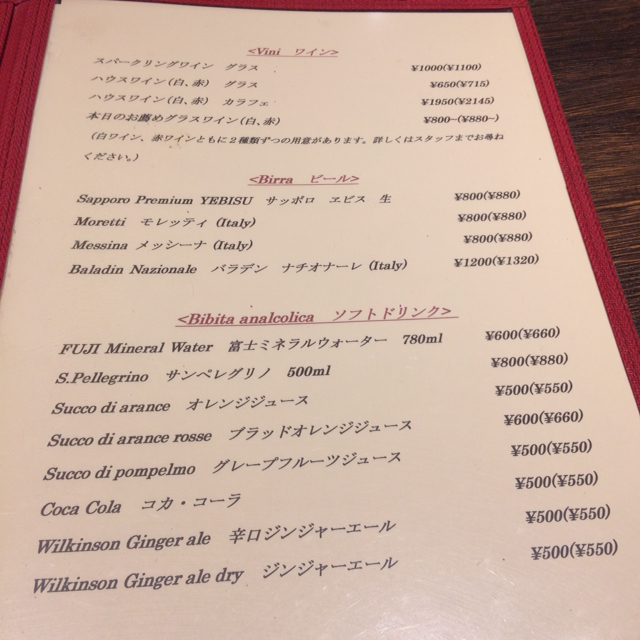 <Vini ワイン>
スパークリングワイン グラス ¥1000(¥1100)
ハウスワイン(白、赤) グラス ¥650(¥715)
ハウスワイン(白、赤) カラフェ ¥1950(¥2145)
本日のお薦めグラスワイン(白、赤) ¥800~(¥880~)
(白ワイン、赤ワインともに2種類ずつの用意があります。詳しくはスタッフまでお尋ね
ください。)
<Birra ビール>
Sapporo Premium YEBISU サッポロ ヱビス 生 ¥800(¥880)
Moretti モレッティ (Italy) ¥800(¥880)
Messina メッシーナ (Italy) ¥800(¥880)
Baladin Nazionale バラデン ナチオナーレ (Italy) ¥1200(¥1320)
<Bibita analcolica ソフトドリンク>
FUJI Mineral Water 富士ミネラルウォーター 780ml ¥600(¥660)
S.Pellegrino サンペレグリノ 500ml ¥800(¥880)
Succo di arance オレンジジュース ¥500(¥550)
Succo di arance rosse ブラッドオレンジジュース ¥600(¥660)
Succo di pompelmo グレープフルーツジュース ¥500(¥550)
Coca Cola コカ・コーラ ¥500(¥550)
Wilkinson Ginger ale 辛口ジンジャーエール ¥500(¥550)
Wilkinson Ginger ale dry ジンジャーエール ¥500(¥550)